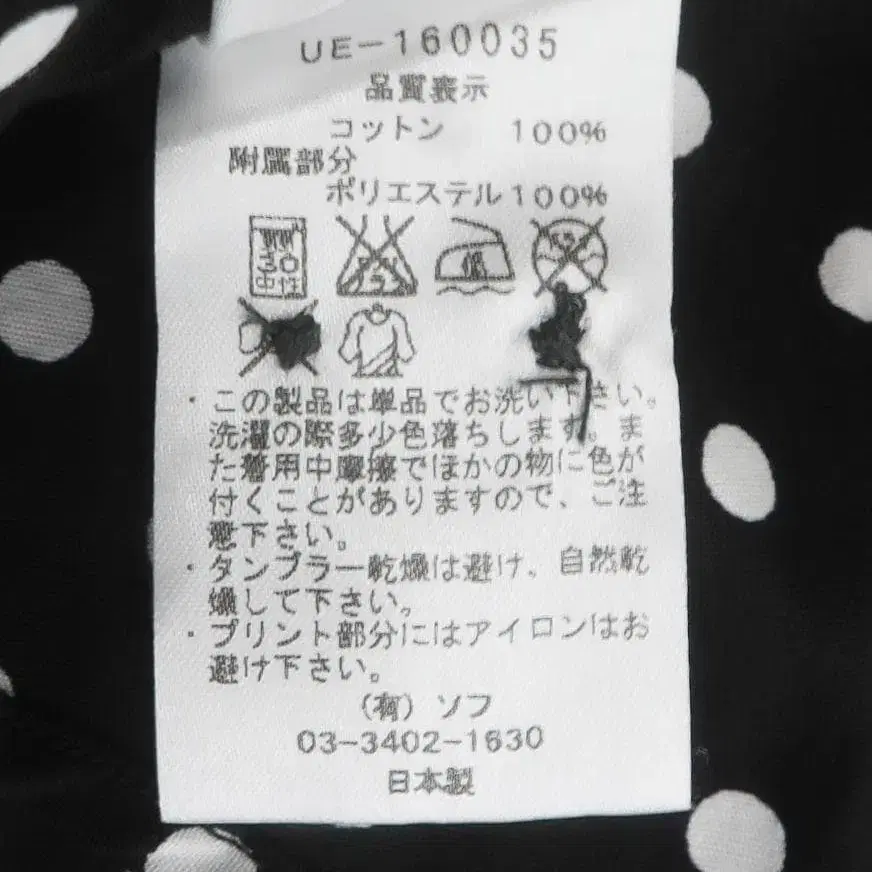 UE-160035
品質表示
コットン 100%
附属部分
ポリエステル100%
30
中性
・この製品は単品でお洗い下さい。
洗濯の際多少色落ちします。ま
た着用中摩擦でほかの物に色が
付くことがありますので、ご注
意下さい。
・タンブラー乾燥は避け、自然乾
燥して下さい。
・プリント部分にはアイロンはお
避け下さい。
(有)ソフ
03-3402-1630
日本製